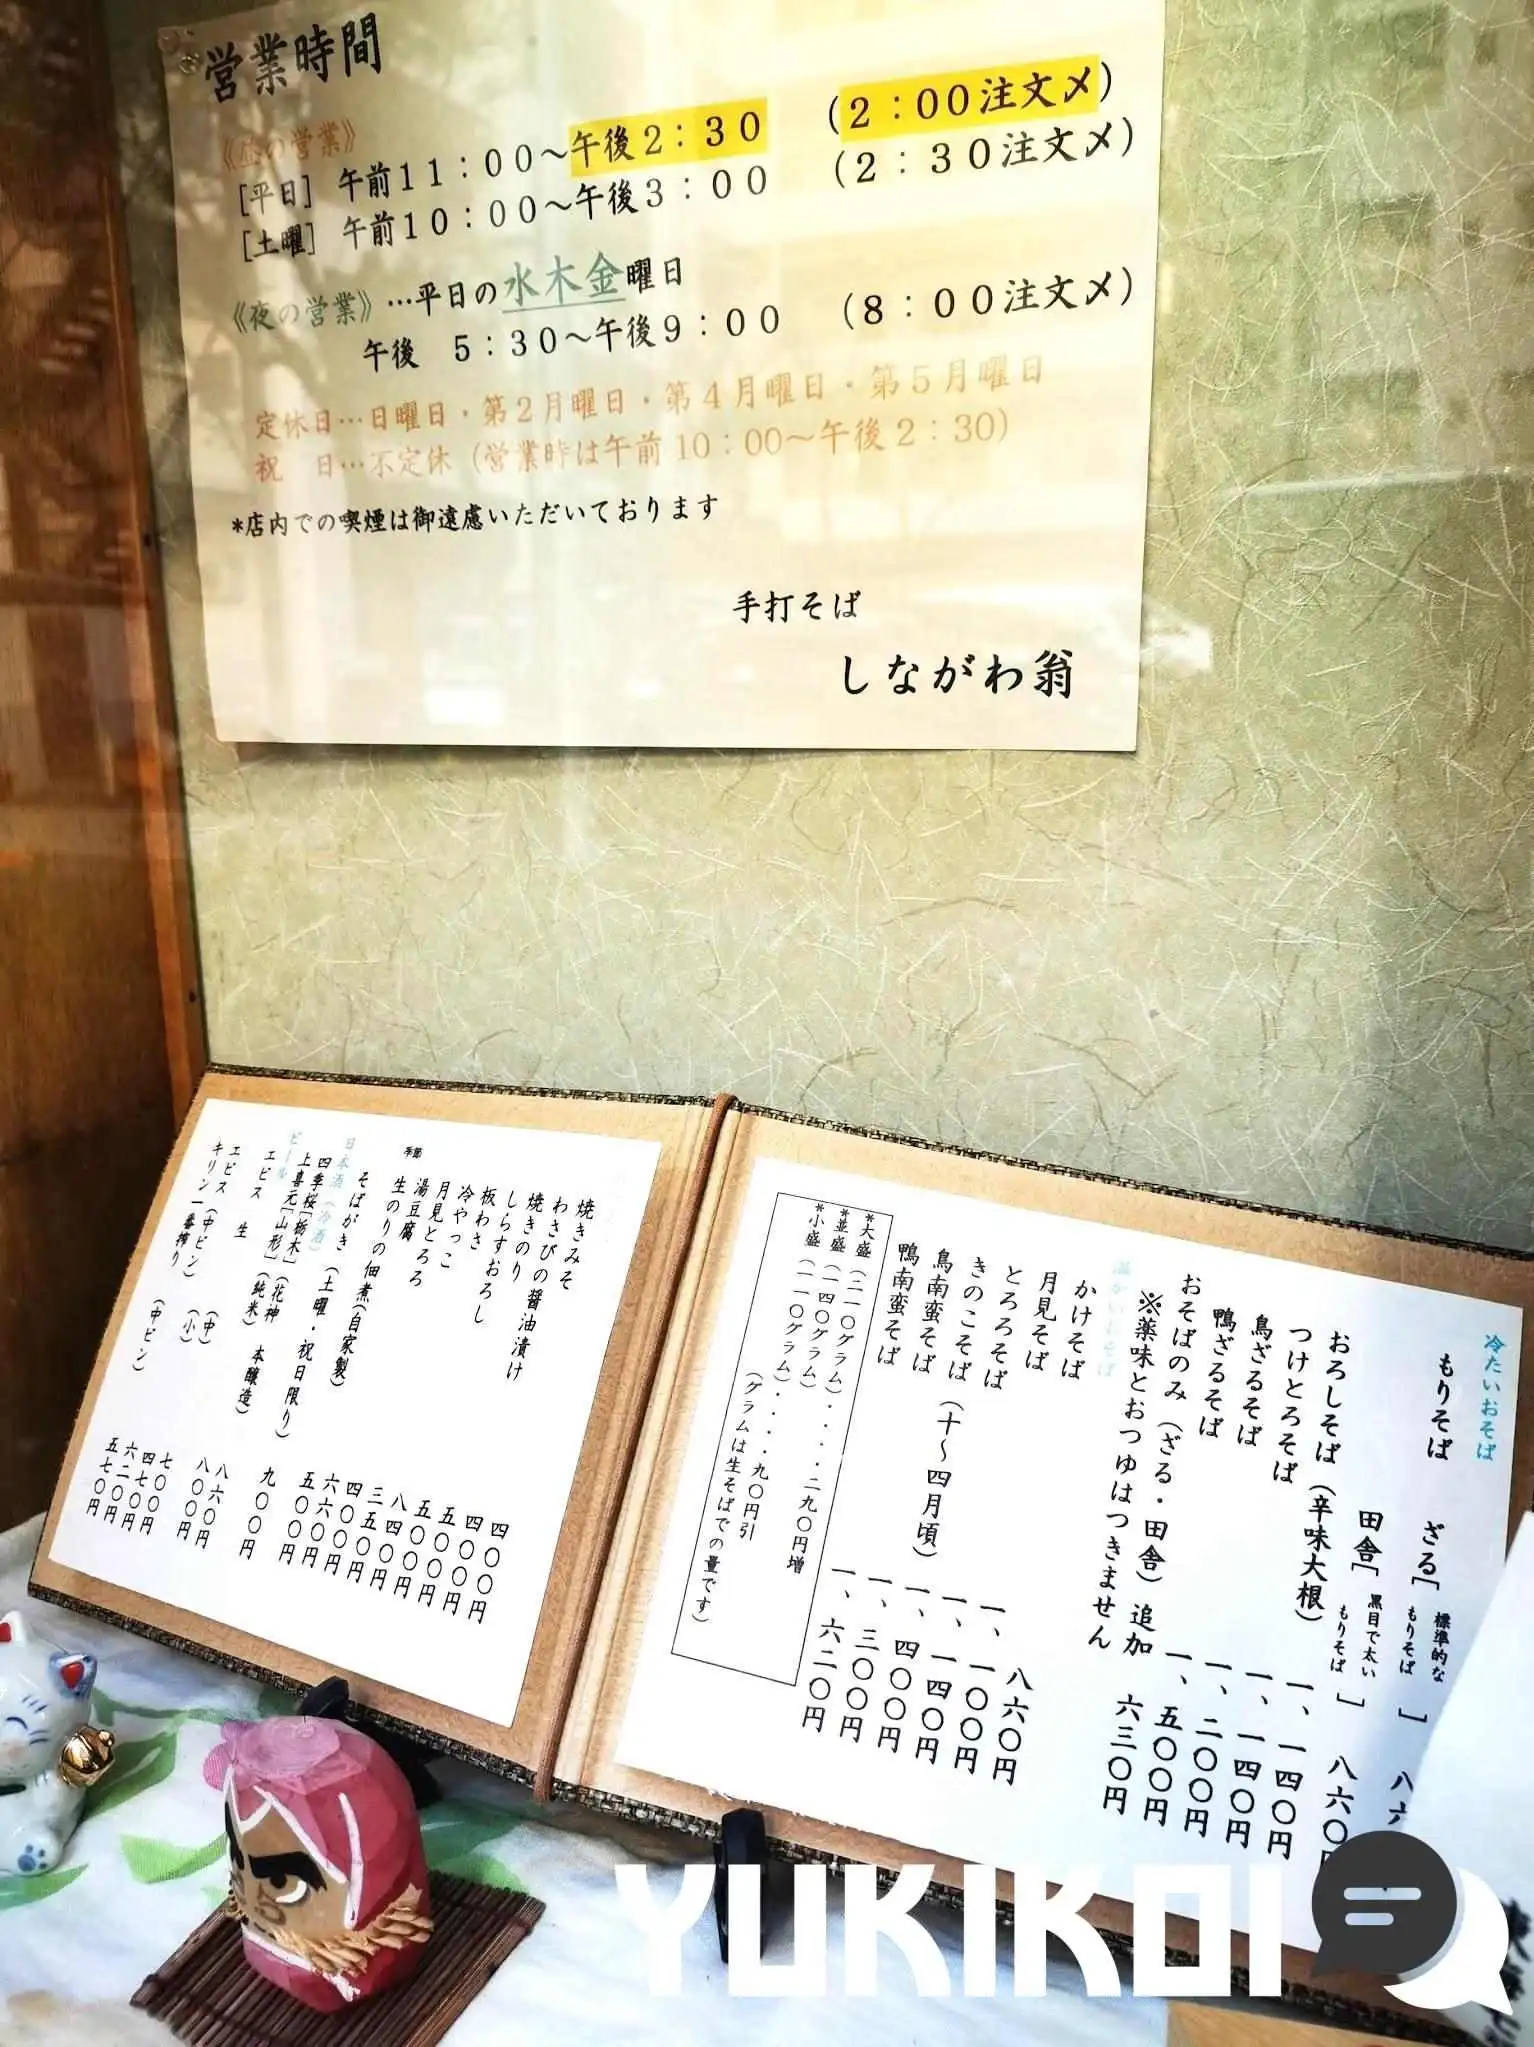 営業時間
《昼の営業》
[平日] 午前11：00～午後2：30 (2：00注文〆)
[土曜] 午前10：00～午後3：00 (2：30注文〆)
《夜の営業》…平日の水木金曜日
午後 5：30～午後9：00 (8：00注文〆)
定休日…日曜日・第2月曜日・第4月曜日・第5月曜日
祝 日…不定休 (営業時は午前10：00～午後2：30)
*店内での喫煙は御遠慮いただいております
手打そば
しながわ翁
冷たいおそば
もりそば ざる［標準的なもりそば］ 八六
田舎［黒目で太いもりそば］ 八六〇
おろしそば（辛味大根） 一、一四〇円
つけとろそば 一、一四〇円
鳥ざるそば 一、二〇〇円
鴨ざるそば 一、五〇〇円
おそばのみ（ざる・田舎）追加 六三〇円
※薬味とおつゆはつきません
温かいおそば
かけそば 八六〇円
月見そば 一、一〇〇円
とろろそば 一、一四〇円
きのこそば（十～四月頃） 一、四〇〇円
鳥南蛮そば 一、三〇〇円
鴨南蛮そば 一、六二〇円
*大盛（二一〇グラム）・・・・二九〇円増
*並盛（一四〇グラム）
*小盛（一一〇グラム）・・・・九〇円引
（グラムは生そばでの量です）
焼きみそ 四〇〇円
わさびの醤油漬け 四〇〇円
焼きのり 五〇〇円
しらすおろし 五〇〇円
板わさ 八四〇円
冷やっこ 三五〇円
月見とろろ 四〇〇円
湯豆腐 六六〇円
季節 生のりの佃煮（自家製） 五〇〇円
そばがき（土曜・祝日限り） 九〇〇円
日本酒（冷酒）
四季桜［栃木］（花神 本醸造） 八六〇円
上喜元［山形］（純米） 八〇〇円
ビール
エビス 生 （中） 七〇〇円
（小） 四七〇円
エビス（中ビン） 六二〇円
キリン一番搾り （中ビン） 五七〇円
YUKIKOI